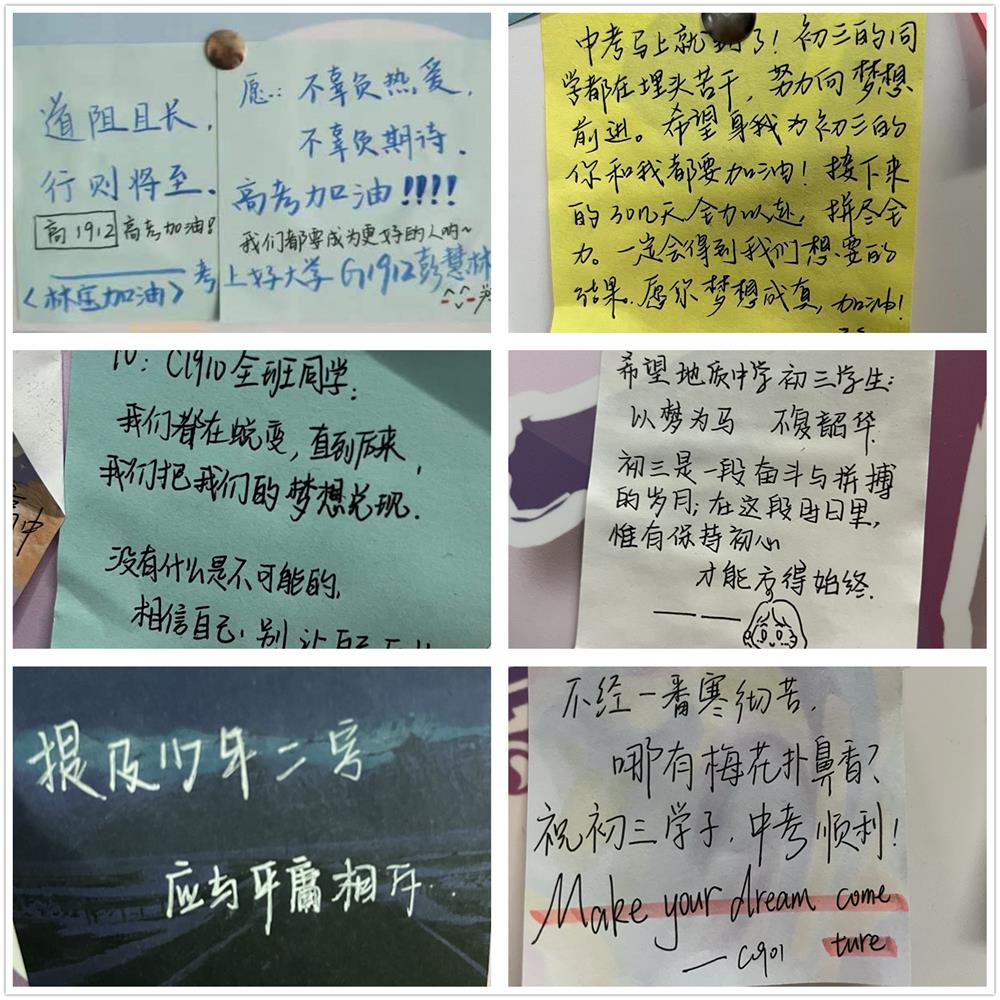 道阻且长，
行则将至．
高1912 高考加油!
〈林宝加油〉
愿：不辜负热爱，
不辜负期待．
高考加油!!!!
我们都要成为更好的人哟~
考上好大学 G1912彭慧林
中考马上就到了！初三的同
学都在埋头苦干，努力向梦想
前进。希望身我为初三的
你和我都要加油！接下来
的30几天全力以赴，拼尽全
力。一定会得到我们想要的
结果。愿你梦想成真，加油！
To：C1910全班同学：
我们都在蜕变，直到后来，
我们把我们的梦想兑现．
没有什么是不可能的，
相信自己，别让自己
高中
希望地质中学初三学生：
以梦为马 不复韶华
初三是一段奋斗与拼搏
的岁月；在这段时日里，
惟有保持初心
才能方得始终．
——
提及少年二字
应与平庸相斥．
不经一番寒彻苦，
哪有梅花扑鼻香？
祝初三学子，中考顺利！
Make your dream come
ture
—C1901